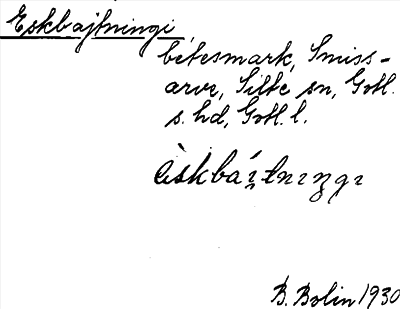 Eskbajtningi,
betesmark, Smiss-
arve, Silte sn, Gotl.
s. hd, Gotl. l.
èskbái̯tnıŋgı
B. Bolin 1930